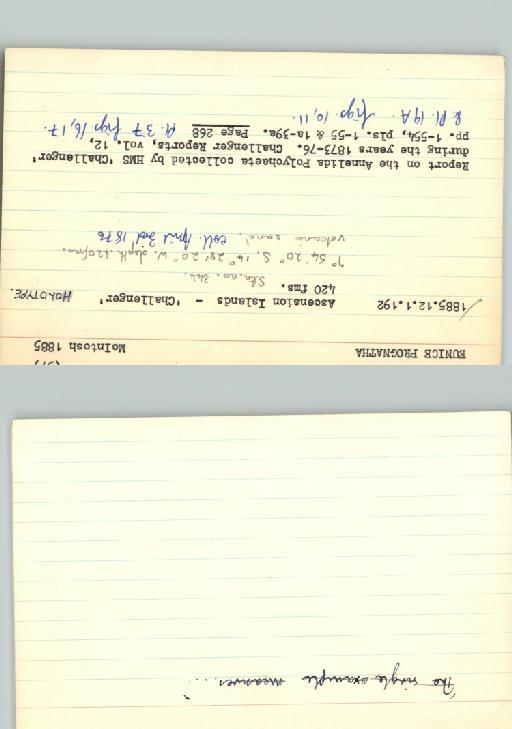 EUNICE PROGNATHA McIntosh 1885
1885.12.1.192 Ascension Islands - 'Challenger' HOLOTYPE.
420 fms.
Stn. no. 344.
7° 54' 20" S, 14° 28' 20" W. depth. 420fms.
volcanic sand. coll. April 3rd 1876
Report on the Annelida Polychaeta collected by HMS 'Challenger'
during the years 1873-76. Challenger Reports, vol. 12,
pp. 1-554, pls. 1-55 & 1a-39a. Page 268 Pl. 37 figs 16, 17.
& Pl. 19A figs 10, 11.
The single example measures...